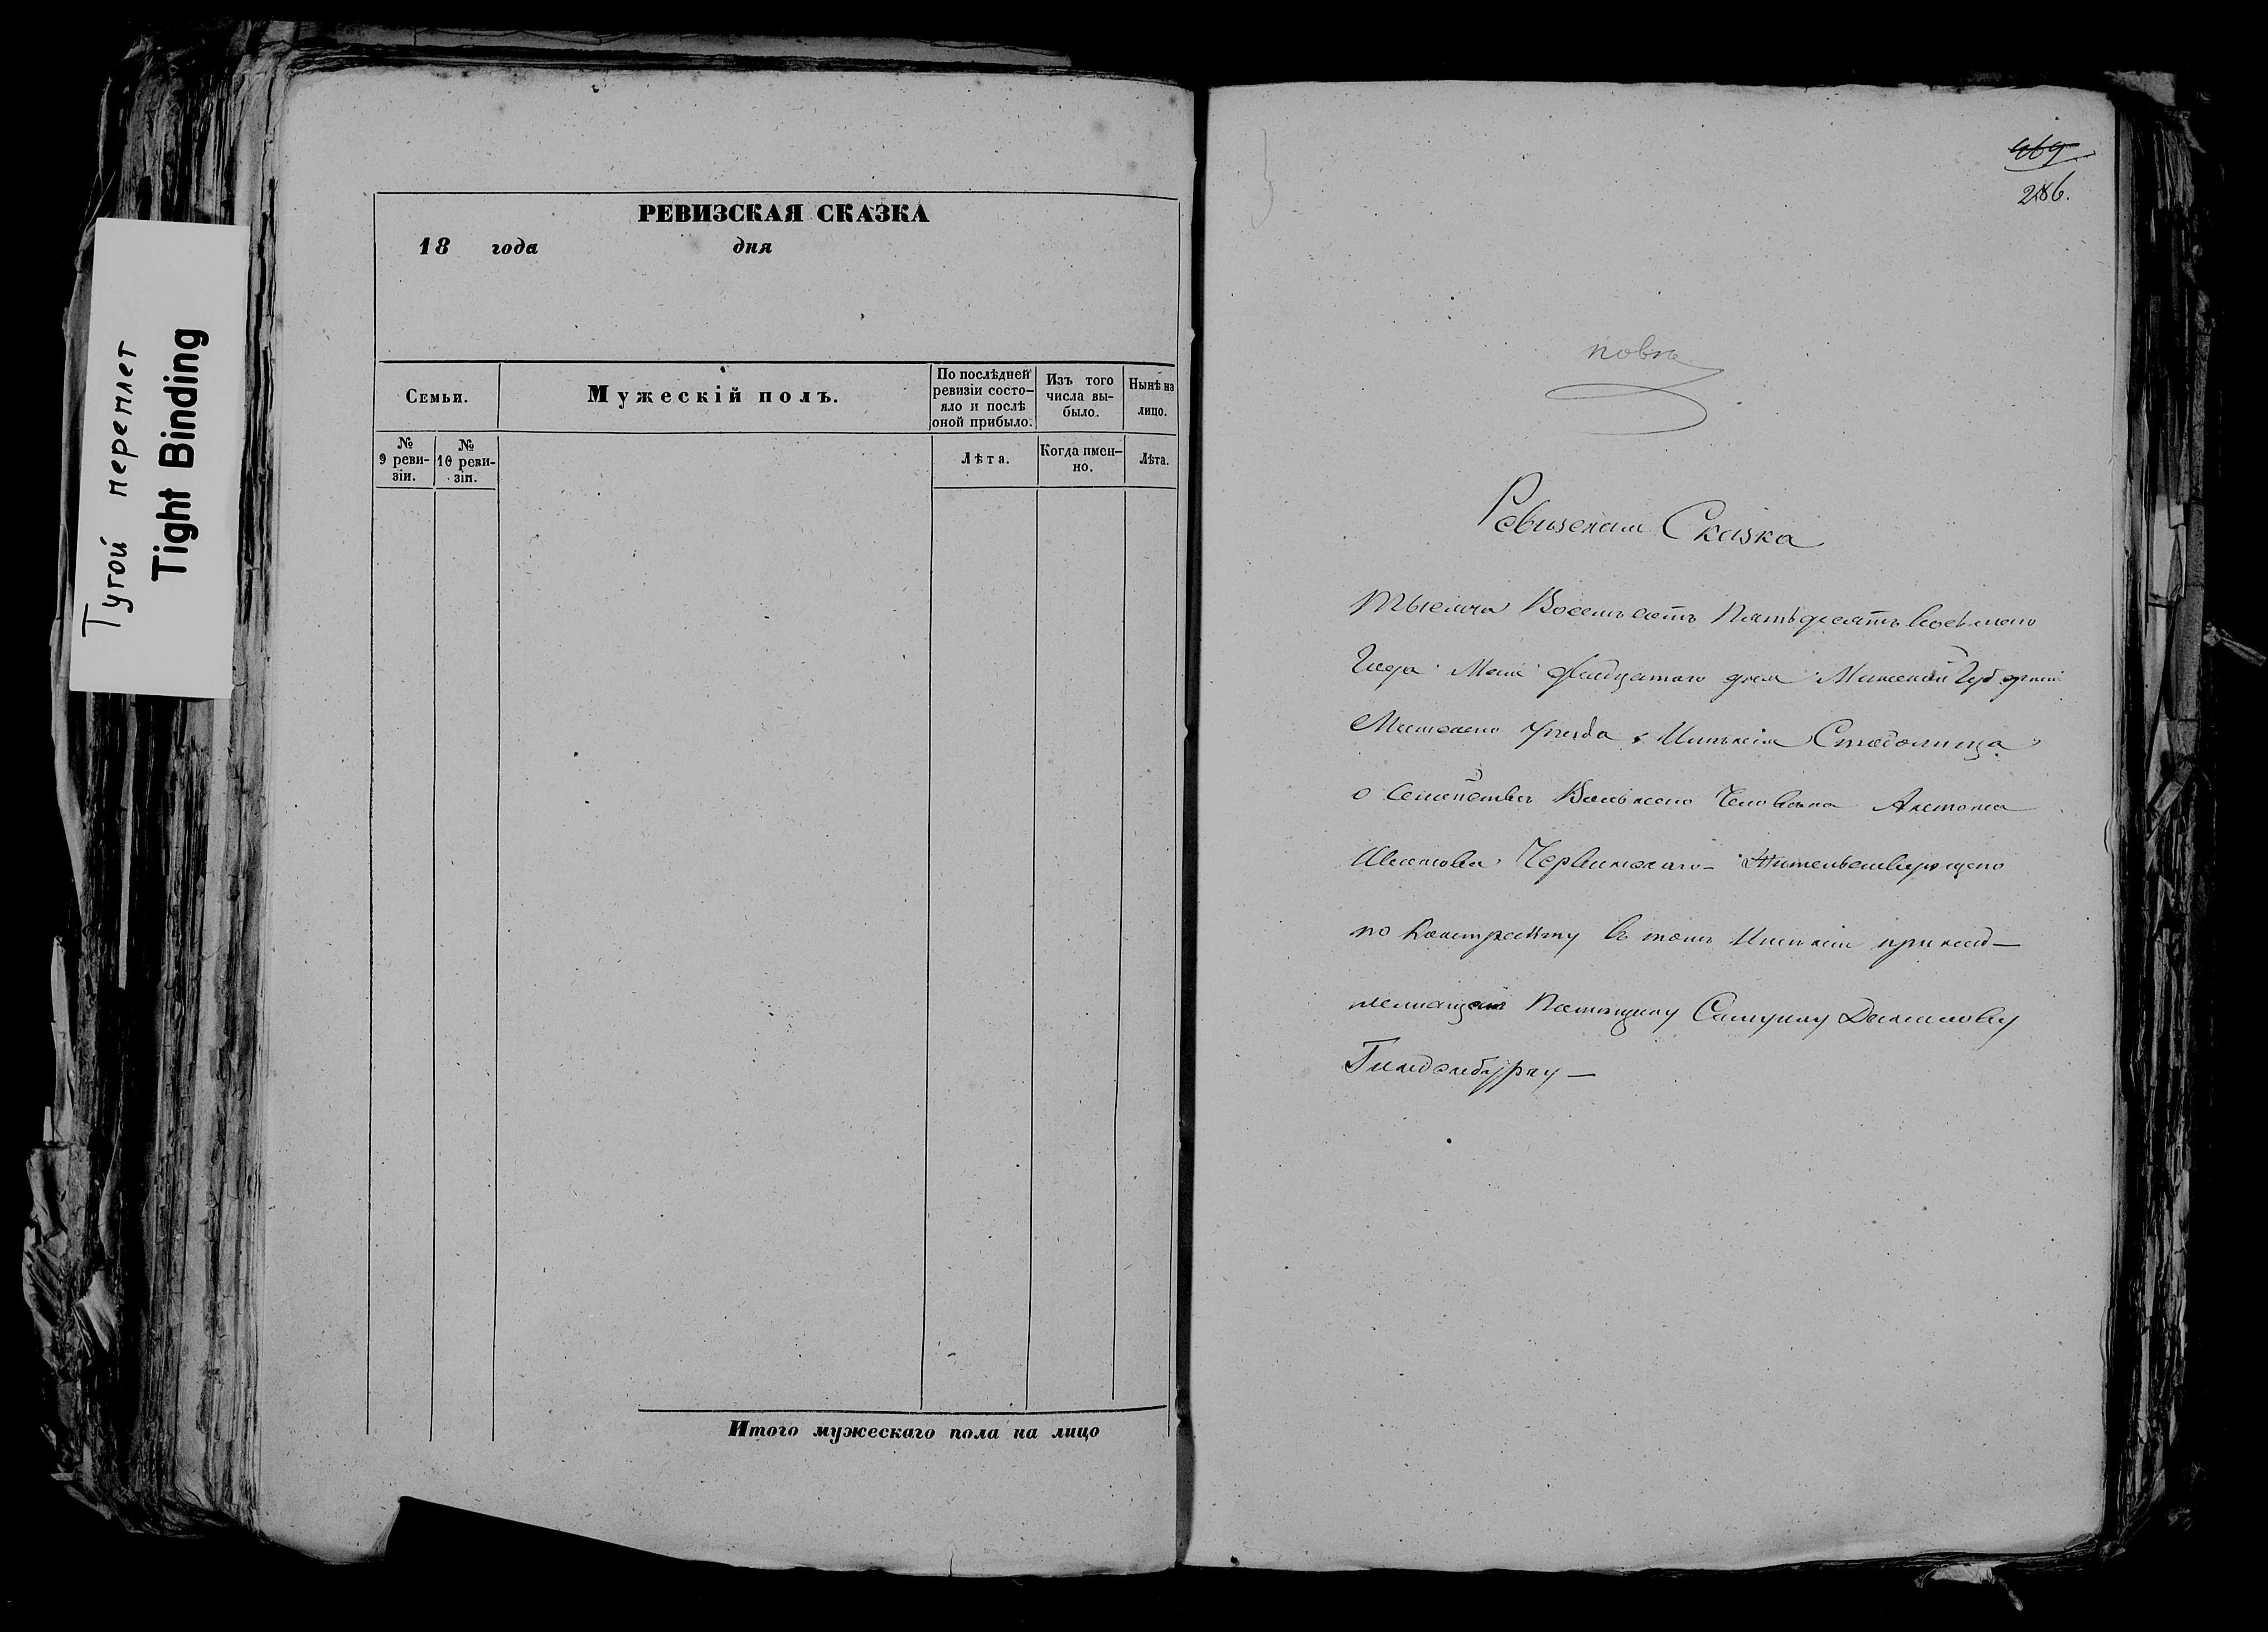 Тугой переплет
Tight Binding
РЕВИЗСКАЯ СКАЗКА
18 года дня
Семьи.
Мужескій полъ.
По послѣдней ревизіи состо-
яло и послѣ оной прибыло.
Изъ того числа вы-
было.
Нынѣ на лицо.
№ 9 реви-
зіи.
№ 10 реви-
зіи.
Лѣта.
Когда имен-
но.
Лѣта.
Итого мужескаго пола на лицо
469
286.
Ревизская Сказка
Тысяча Восемьсотъ Пятьдесятъ восьмого
Года Мая двадцатого дня Минской Губерніи
Минского Уѣзда Имѣнія Стадолища
о Семействѣ Вольного Человѣка Антона
Иванова Червинского –
по Контракту въ томъ Имѣніи принад–
лежащемъ Помѣщику Самуилу Данилову
Гинденбургу –